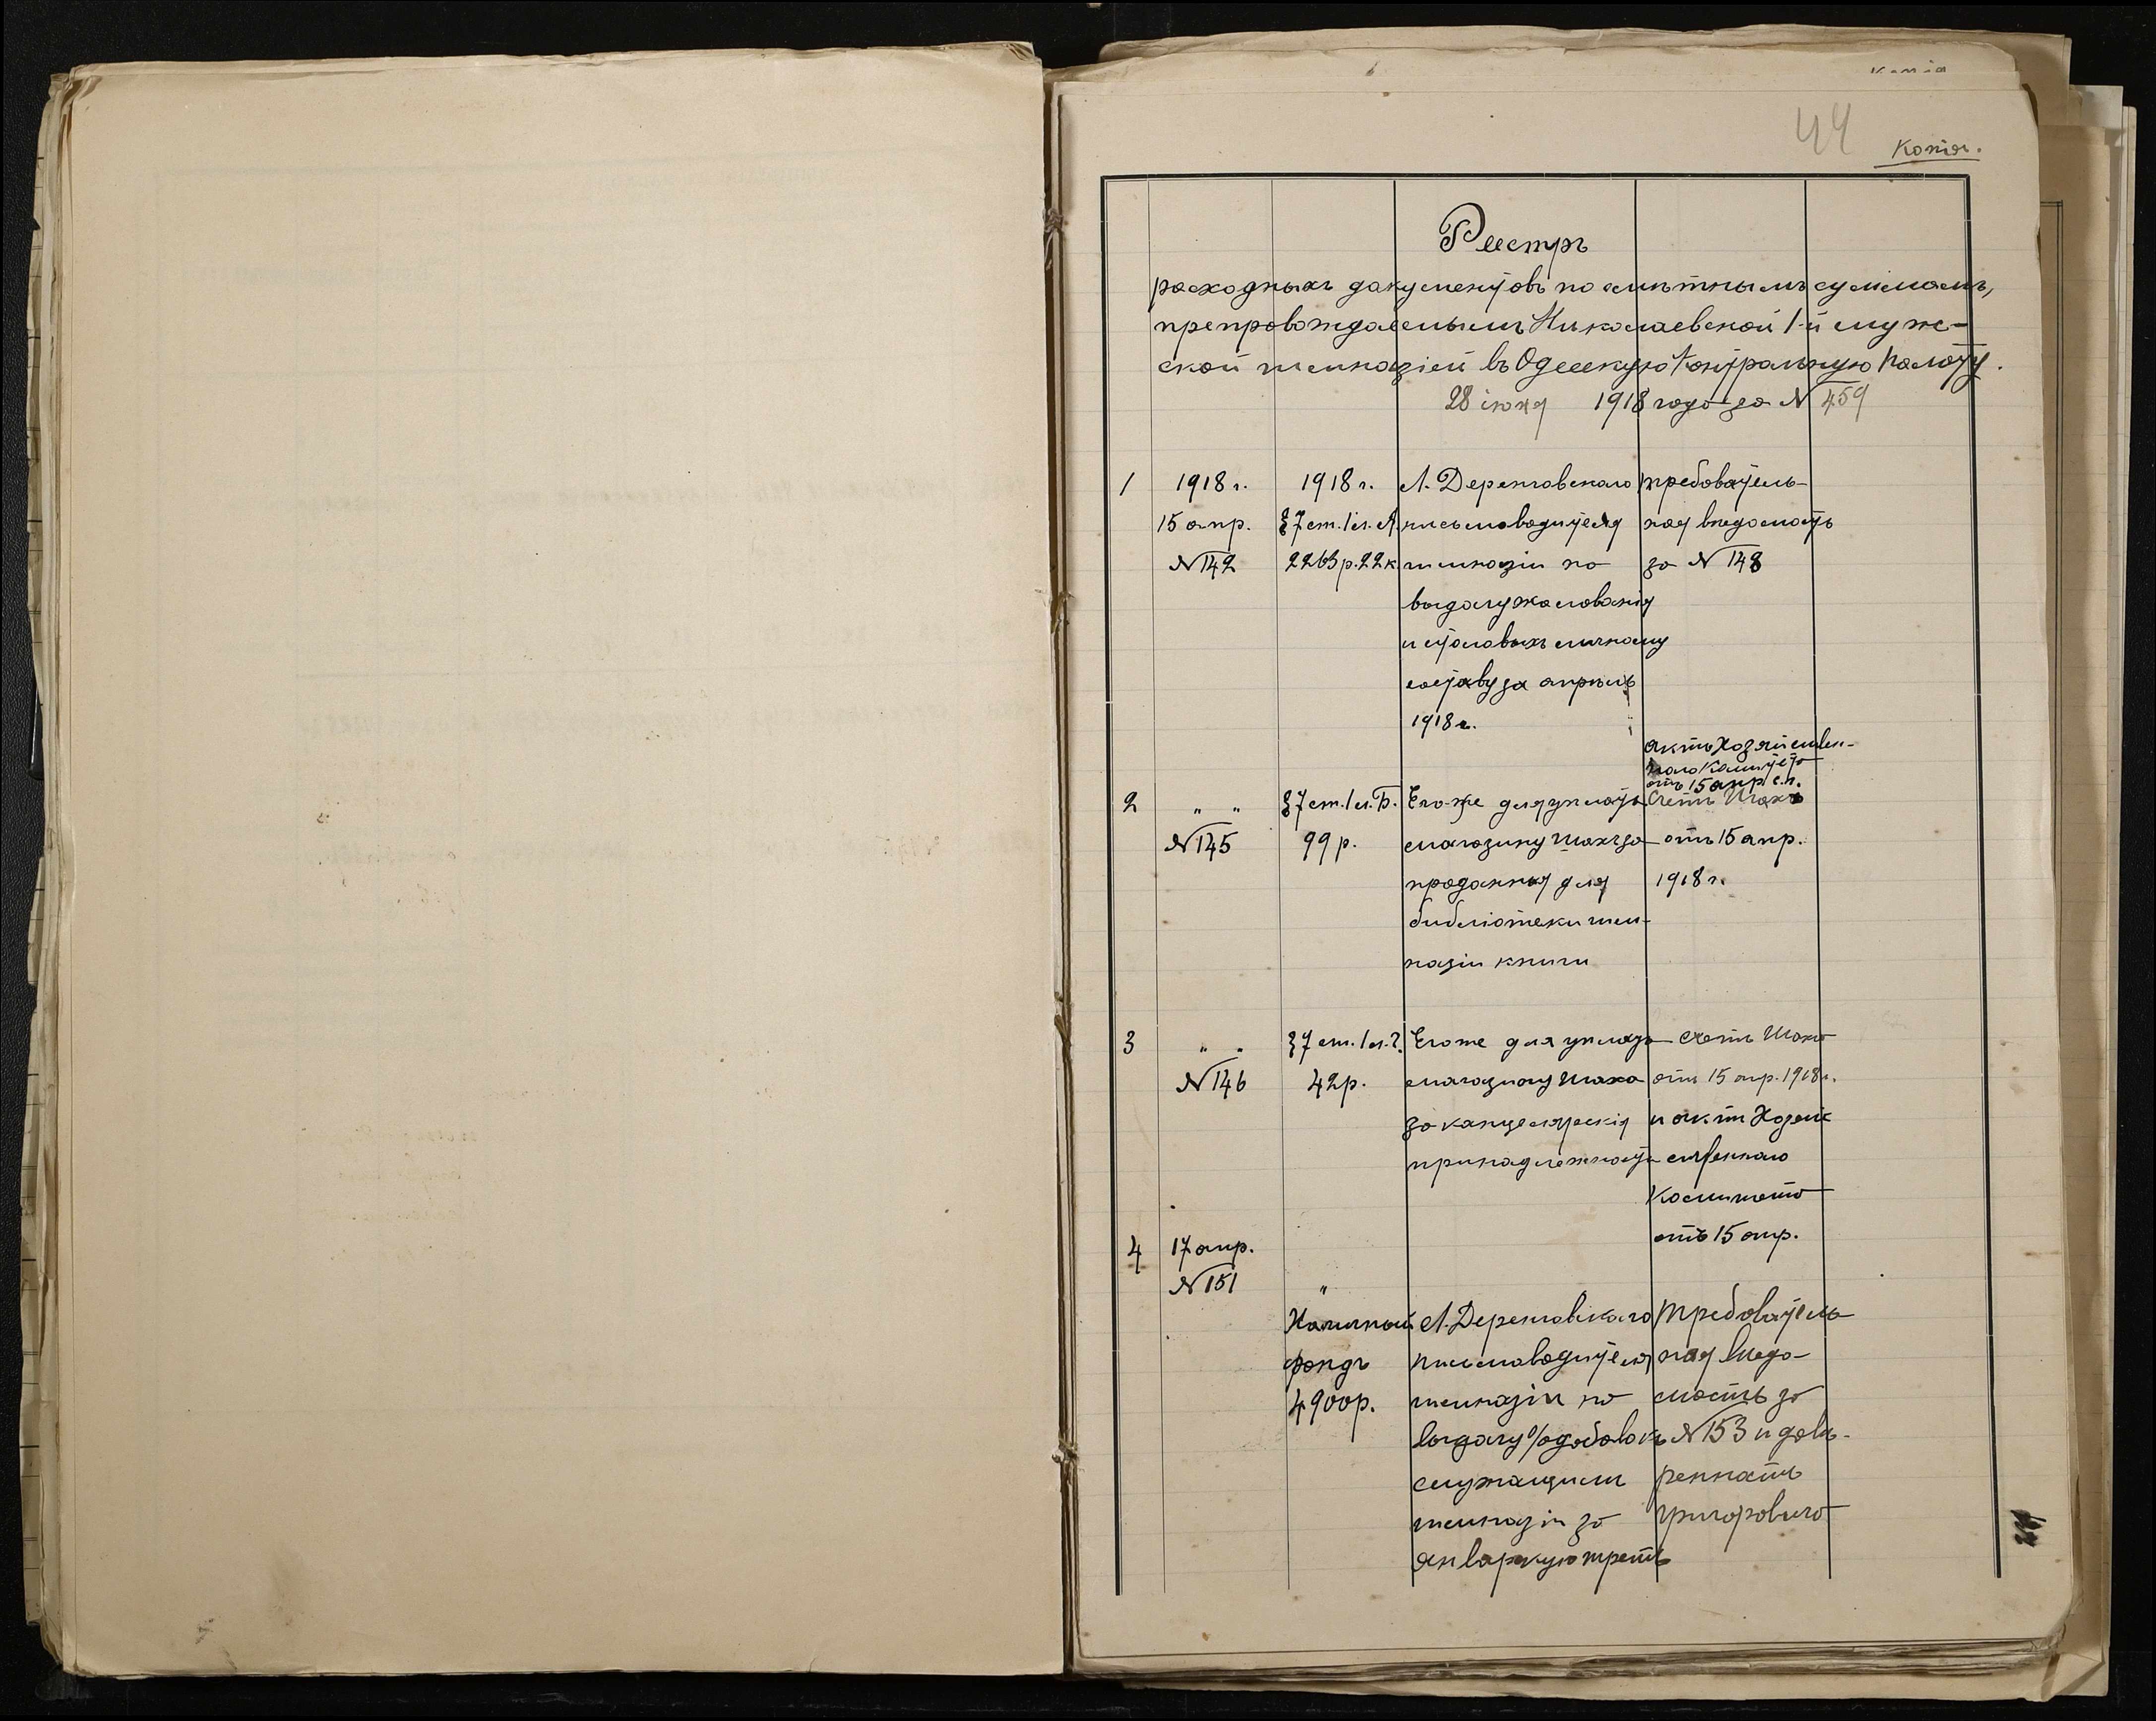 44
Копія.
Реестръ
расходныхъ документовъ по смѣтнымъ суммамъ,
препровождаемымъ Николаевской 1-й муже-
ской гимназіей въ Одесскую Контрольную Палату.
28 іюня 1918 года за № 459
1
1918 г.
15 апр.
№ 142
1918 г.
§7 ст. 1 л. А.
2263 р. 22 к
Л. Держговскаго
письмоводителя
гимназіи на
выдачу жалованія
и столовыхъ личному
составу за апрѣль
1918 г.
требователь-
ная вѣдомость
за № 148
2
" "
№ 145
§7 ст. 1 л. Б.
99 р.
Его-же для уплаты
магазину Шахъ за
проданныя для
библіотеки гим-
назіи книги
актъ Хозяйствен-
наго Комитета
отъ 15 апр. с.г.
Счетъ Шахъ
отъ 15 апр.
1918 г.
3
" "
№ 146
§7 ст. 1 л.
42 р.
Его же для уплаты
магазину Шаха
за канцелярскія
принадлежности
Счетъ Шаха
отъ 15 апр. 1918 г.
и актъ Хозяй
ственнаго
Комитета
отъ 15 апр.
4
17 апр.
№ 151
"
Наличный
фондъ
4900 р.
письмоводителя
гимназіи на
выдачу % добавокъ
служащимъ
гимназіи за
январскую треть
Требователь
ная вѣдо-
мость за
№ 153 и довѣ-
ренность
Григоровича